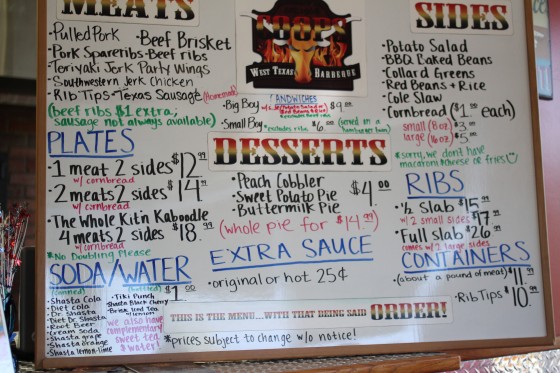 MEATS
•Pulled Pork •Beef Brisket
•Pork Spareribs •Beef ribs
•Teriyaki Jerk Party Wings
•Southwestern Jerk Chicken
•Rib Tips •Texas Sausage (Homemade)
(beef ribs $1 extra;
sausage not always available)
PLATES
•1 meat 2 sides $12.99
w/ cornbread
•2 meats 2 sides $14.99
w/ cornbread
•The Whole Kit'n Kaboodle
4 meats 2 sides $18.99
w/ cornbread
*No Doubling Please
SODA/WATER
$1.00
•Shasta Cola
•Diet cola
•Dr. Shasta
•Diet Dr. Shasta
•Root Beer
•Cream soda
•Shasta grape
•Shasta orange
•Shasta lemon-lime
•Tiki Punch
•Shasta Black Cherry
•Brisk Iced tea
w/lemon
we also have
complementary
sweet tea
& water!
WEST TEXAS BARBEQUE
SANDWICHES
•Big Boy $9.00
•Small Boy $6.00
DESSERTS
•Peach Cobbler
•Sweet Potato Pie
•Buttermilk Pie
$4.00
(whole pie for $14.99)
EXTRA SAUCE
•original or hot 25¢
THIS IS THE MENU...WITH THAT BEING SAID ORDER!
*prices subject to change w/o notice!
SIDES
•Potato Salad
•BBQ Baked Beans
•Collard Greens
•Red Beans + Rice
•Cole Slaw
•Cornbread ($1.00 each)
small (8oz) $3
large (16oz) $5
*sorry, we don't have
macaroni & cheese or fries!
RIBS
•½ slab $15.99
w/ 2 small sides $17.99
•Full slab $26.99
comes w/ 2 large sides
CONTAINERS
•(about a pound of meat) $11.99
•Rib Tips $10.99